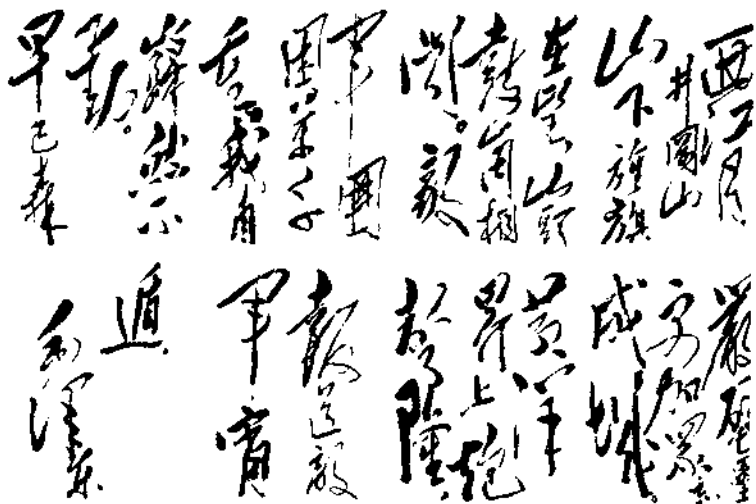 西江月
井岡山
山下旌旗
在望山頭
鼓角相
聞。敵
軍圍
困萬千
重我自
巋然不
動。
早已森
嚴壁壘
更加眾志
成城。
黄洋
界上炮
聲隆
報道敵
軍宵
遁
毛澤東